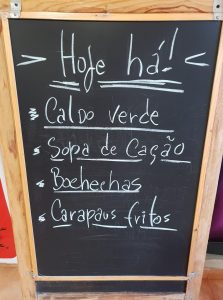 > Hoje há! <
Caldo verde
Sopa de Cação
Bochechas
Carapaus fritos